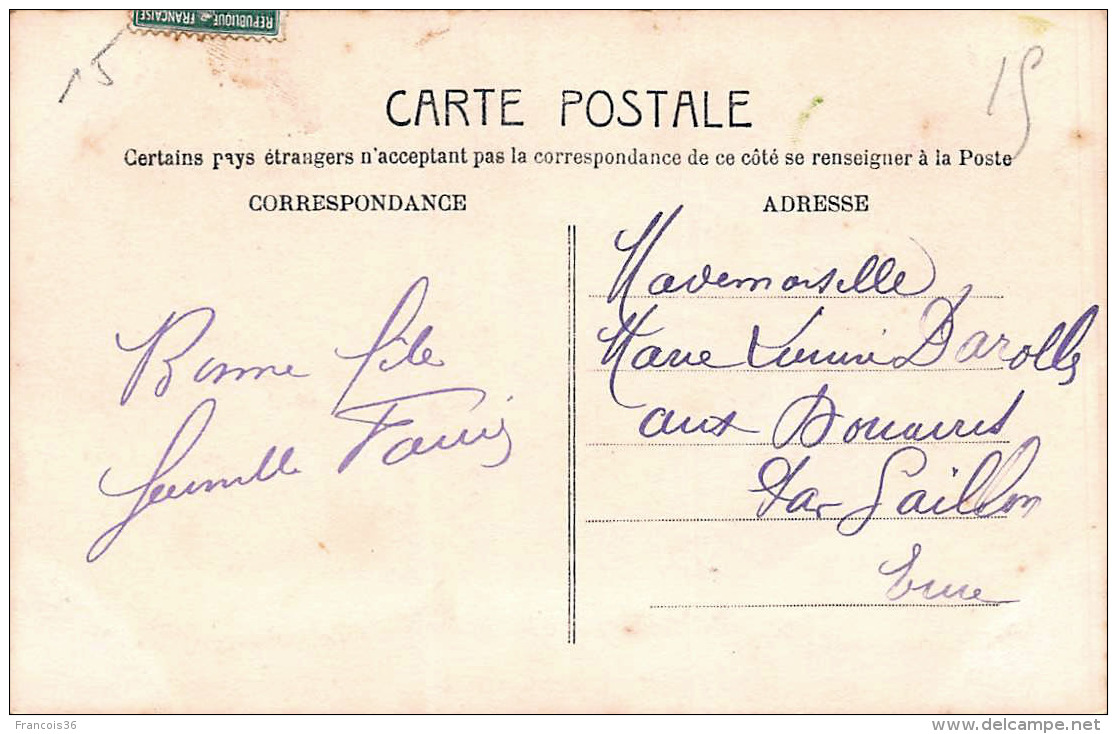 REPUBLIQUE FRANCAISE
15
15
CARTE POSTALE
Certains pays étrangers n'acceptant pas la correspondance de ce côté se renseigner à la Poste
CORRESPONDANCE
Bonne fête
famille
ADRESSE
Mademoiselle
Marie Darolles
aux Douaires
Par Gaillon
Eure
Francois36
www.delcampe.net